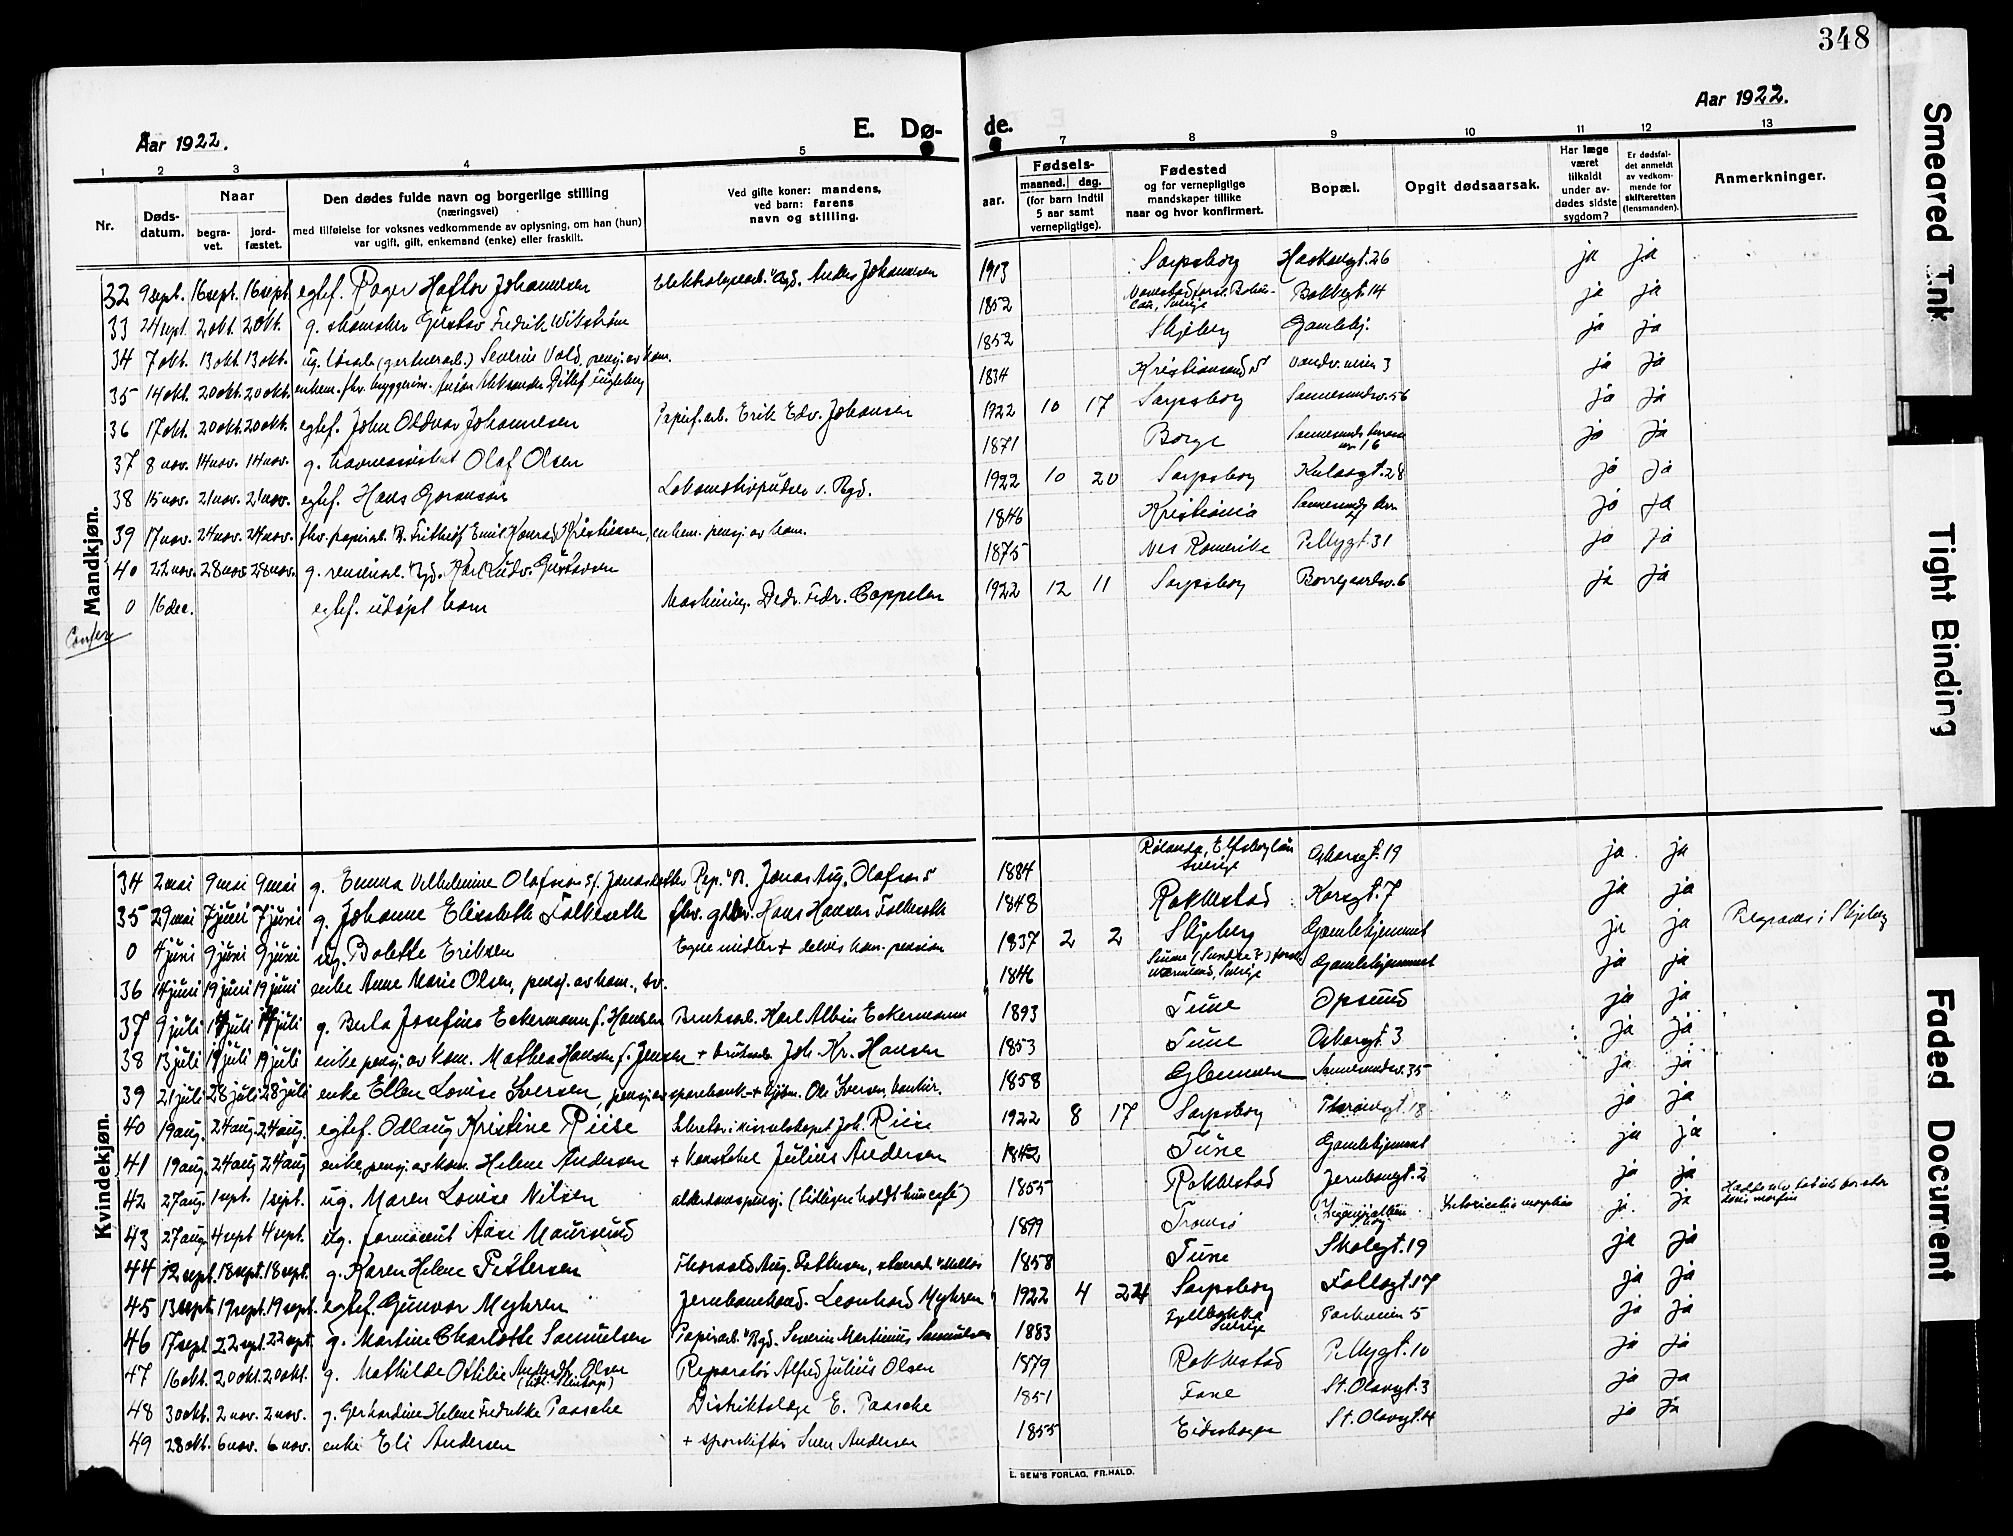 348
Aar 1922.
E. Dø-
de.
Aar 1922.
1 2 3 4 5
7 8 9 10 11 12 13
Nr.
Døds-
datum.
Naar
begra-
vet.
jord-
fæstet.
Den dødes fulde navn og borgerlige stilling
(næringsvei)
med tilføielse for voksnes vedkommende av oplysning, om han (hun)
var ugift, gift, enkemand (enke) eller fraskilt.
Ved gifte koner: mandens,
ved barn: farens
navn og stilling.
Fødsels-
aar.
maaned. dag.
(for barn indtil
5 aar samt
vernepligtige).
Fødested
og for vernepligtige
mandskaper tillike
naar og hvor konfirmert.
Bopæl.
Opgit dødsaarsak.
Har læge
været
tilkaldt
under av-
dødes sidste
sygdom?
Er dødsfal-
det anmeldt
av vedkom-
mende for
skifteretten
(lensmanden).
Anmerkninger.
Mandkjøn.
32 9 sept. 16 sept. 16 sept. egtef. Roger Haftor Johannesen Anders Johannesen 1913 Sarpsborg 26 ja ja
33 24 sept. 2 okt. 2 okt. g. skomaker Gustav Fredrik Wikstrøm 1852 Sverige 14 ja ja
34 7 okt. 13 okt. 13 okt. ug. Severin Vold, pensj. av kom. 1852 Skjeberg Gamlehj. ja ja
35 14 okt. 20 okt. 20 okt. enkem. fhv. Ditlef Fugleberg 1834 Kristiansand S 3 ja ja
36 17 okt. 20 okt. 20 okt. egtef. John Oldvar Johannesen Papirf.arb. Erik Edv. Johansen 1922 10 17 Sarpsborg Sannesundsv. 56 ja ja
37 8 nov. 14 nov. 14 nov. g. havneassistent Olaf Olsen 1871 Borge 16 ja ja
38 15 nov. 21 nov. 21 nov. egtef. Hans Gøransson Lokomotivpudser v. Bgd. 1922 10 20 Sarpsborg Kulaasgt. 28 ja ja
39 17 nov. 24 nov. 24 nov. fhv. papirarb. B. Frithjof Emil Konrad Kristiansen, enkem. pensj. av kom. 1846 Kristiania ja ja
40 22 nov. 28 nov. 28 nov. g. Bgd. Karl Ludv. Gustavsen 1875 Nes Romerike Pellygt 31 ja ja
0 16 dec. egtef. udøpt barn Maskining. Didr. Fedr. Cappelen 1922 12 11 Sarpsborg Borregaardsv. 6 ja ja
Kvindekjøn.
34 2 mai 9 mai 9 mai g. Emma Vilhelmine Olafsson f. Jonasdatter Rep. B. Jonas Aug. Olafsson 1884 Rølanda, Elfsborglän Sverige Oskarsgt. 19 ja ja
35 29 mai 7 juni 7 juni g. Johanne Elisabeth Folkeseth fhv. Hans Hansen Folkeseth 1848 Rakkestad Korsgt. 7 ja ja
0 4 juni 9 juni 9 juni ug. Bolette Eriksen Egne midler + delvis kom. pension 1837 2 2 Skjeberg Gamlehjemmet ja ja Begraves i Skjeberg
36 14 juni 19 juni 19 juni enke Anne Marie Olsen, pensj. av kom., sv. 1846 Värmland, Sverige Gamlehjemmet ja ja
37 9 juli 14 juli 14 juli g. Berta Josefine Eckermann f. Hansen Bruksarb. Karl Albin Eckermann 1893 Tune Opsund ja ja
38 13 juli 19 juli 19 juli enke pensj. av kom. Mathea Hansen f. Jensen + bruksarb. Joh. Kr. Hansen 1853 Tune Oskarsgt. 3 ja ja
39 21 juli 28 juli 28 juli enke Ellen Lovise Iversen, pensj. av sparebank + kjøbm. Ole Iversen, 1858 Glemmen Sannesundsv. 35 ja ja
40 19 aug. 24 aug. 24 aug. egtef. Odlaug Kristine Riise Joh. Riise 1922 8 17 Sarpsborg 18 ja ja
41 19 aug. 24 aug 24 aug enke, pensj. av kom. Helene Andersen + konstabel Julius Andersen 1842 Tune Gamlehjemmet ja ja
42 27 aug. 1 sept. 1 sept. ug. Maren Lovise Nilsen alderdomspensj. (tidligere holdt hun café) 1855 Rakkestad Jernbanegt. 2 ja ja
43 27 aug. 4 sept 4 sept. ug. Aase Maursund 1899 Tromsø ja ja
44 12 sept. 18 sept. 18 sept. g. Karen Helene Pettersen Thorvald Aug. Pettersen, 1858 Tune Skolegt. 19 ja ja
45 13 sept 19 sept. 19 sept. egtef. Gunvor Myhren Jernbanekond. Leonhard Myhren 1922 4 24 Sarpsborg Follogt. 17 ja ja
46 17 sept 22 sept. 22 sept. g. Martine Charlotte Samuelsen Papirarb. Bgd. Severin Martinius Samuelsen 1883 Fjellbakka Sverige Parkveien 5 ja ja
47 16 okt. 20 okt. 20 okt. g. Mathilde Otilie Olsen Reparatør Alfred Julius Olsen 1879 Rakkestad Pellygt. 10 ja ja
48 30 okt. 2 nov. 2 nov. g. Gerhardine Helene Fredrikke Paasche Distriktslæge E. Paasche 1851 Fane St. Olavsgt. 3 ja ja
49 28 okt. 6 nov. 6 nov. enke Eli Andersen + sporskifter Sven Andersen 1855 Eidsberg St. Olavsgt. 4 ja ja
L. SEM'S FORLAG, FR.HALD.
Smeared Ink
Tight Binding
Faded Document